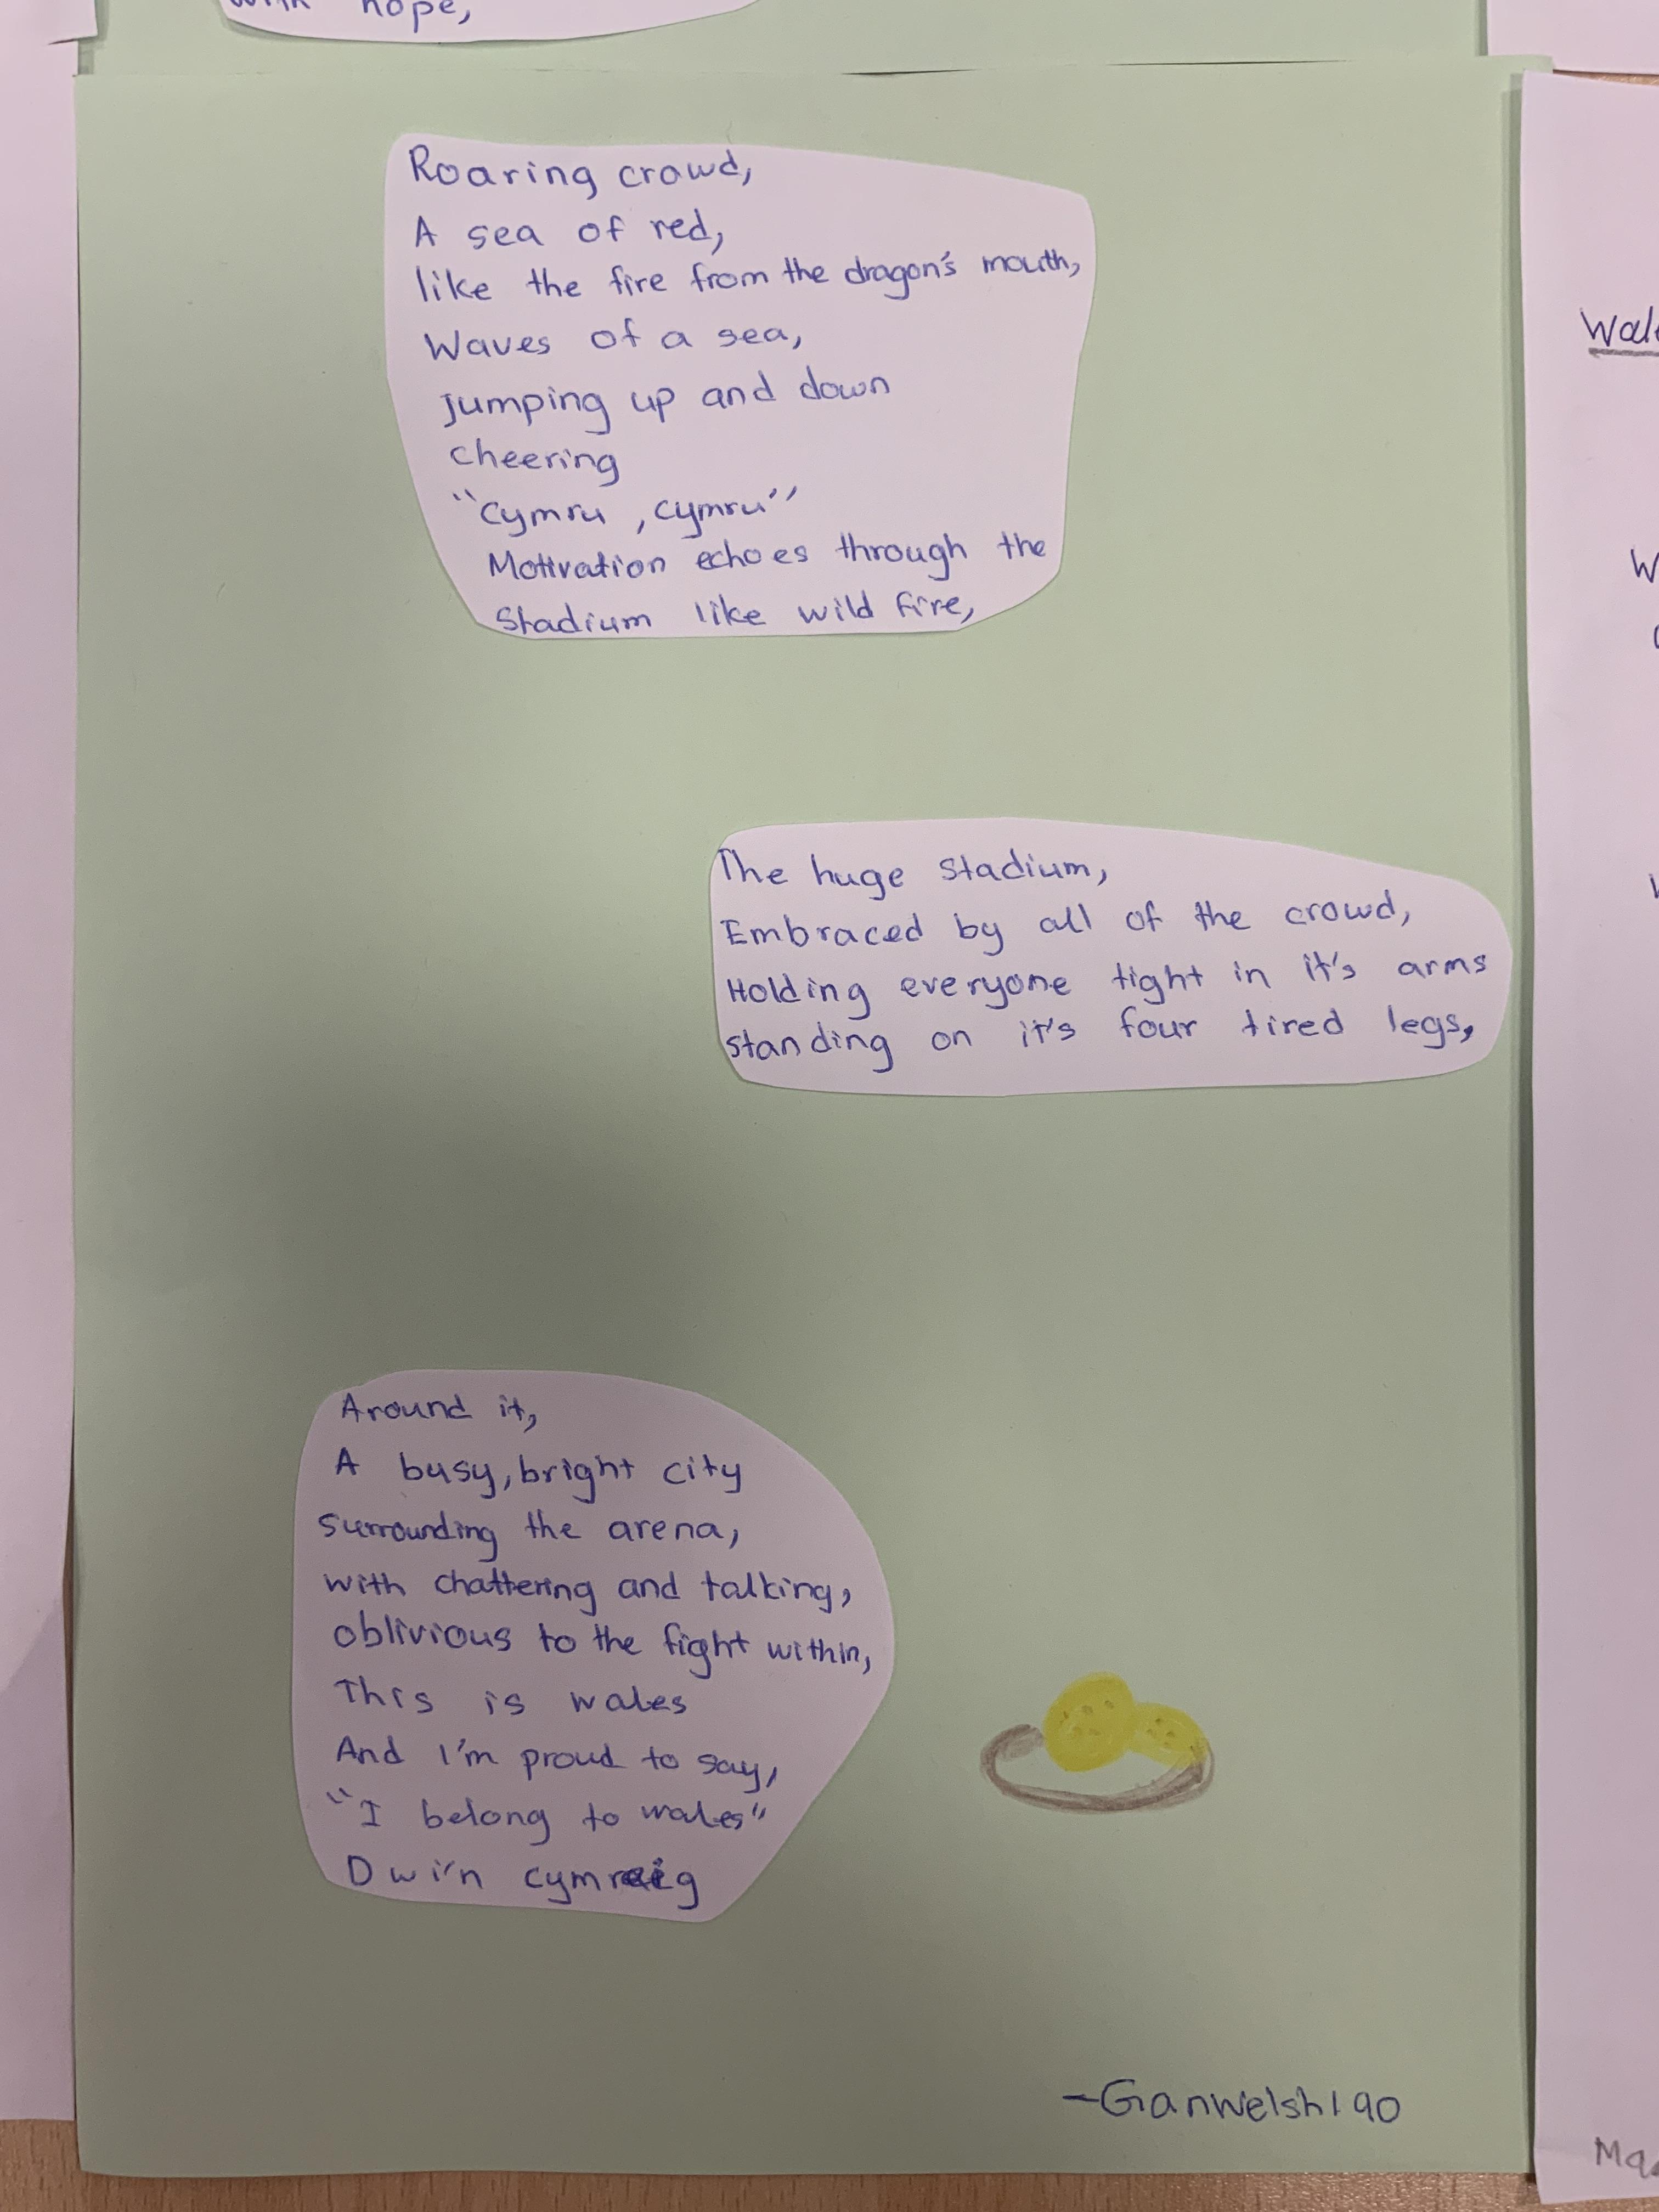 hope,
Roaring crowd,
A sea of red,
like the fire from the dragon's mouth,
Waves of a sea,
jumping up and down
cheering
"Cymru , cymru"
Motivation echoes through the
Stadium like wild fire,
The huge stadium,
Embraced by all of the crowd,
Holding everyone tight in it's arms
standing on it's four tired legs,
Around it,
A busy, bright city
surrounding the arena,
with chattering and talking,
oblivious to the fight within,
This is wales
And I'm proud to say,
"I belong to wales"
Dwi'n cymraeg
-Ganwelsh190